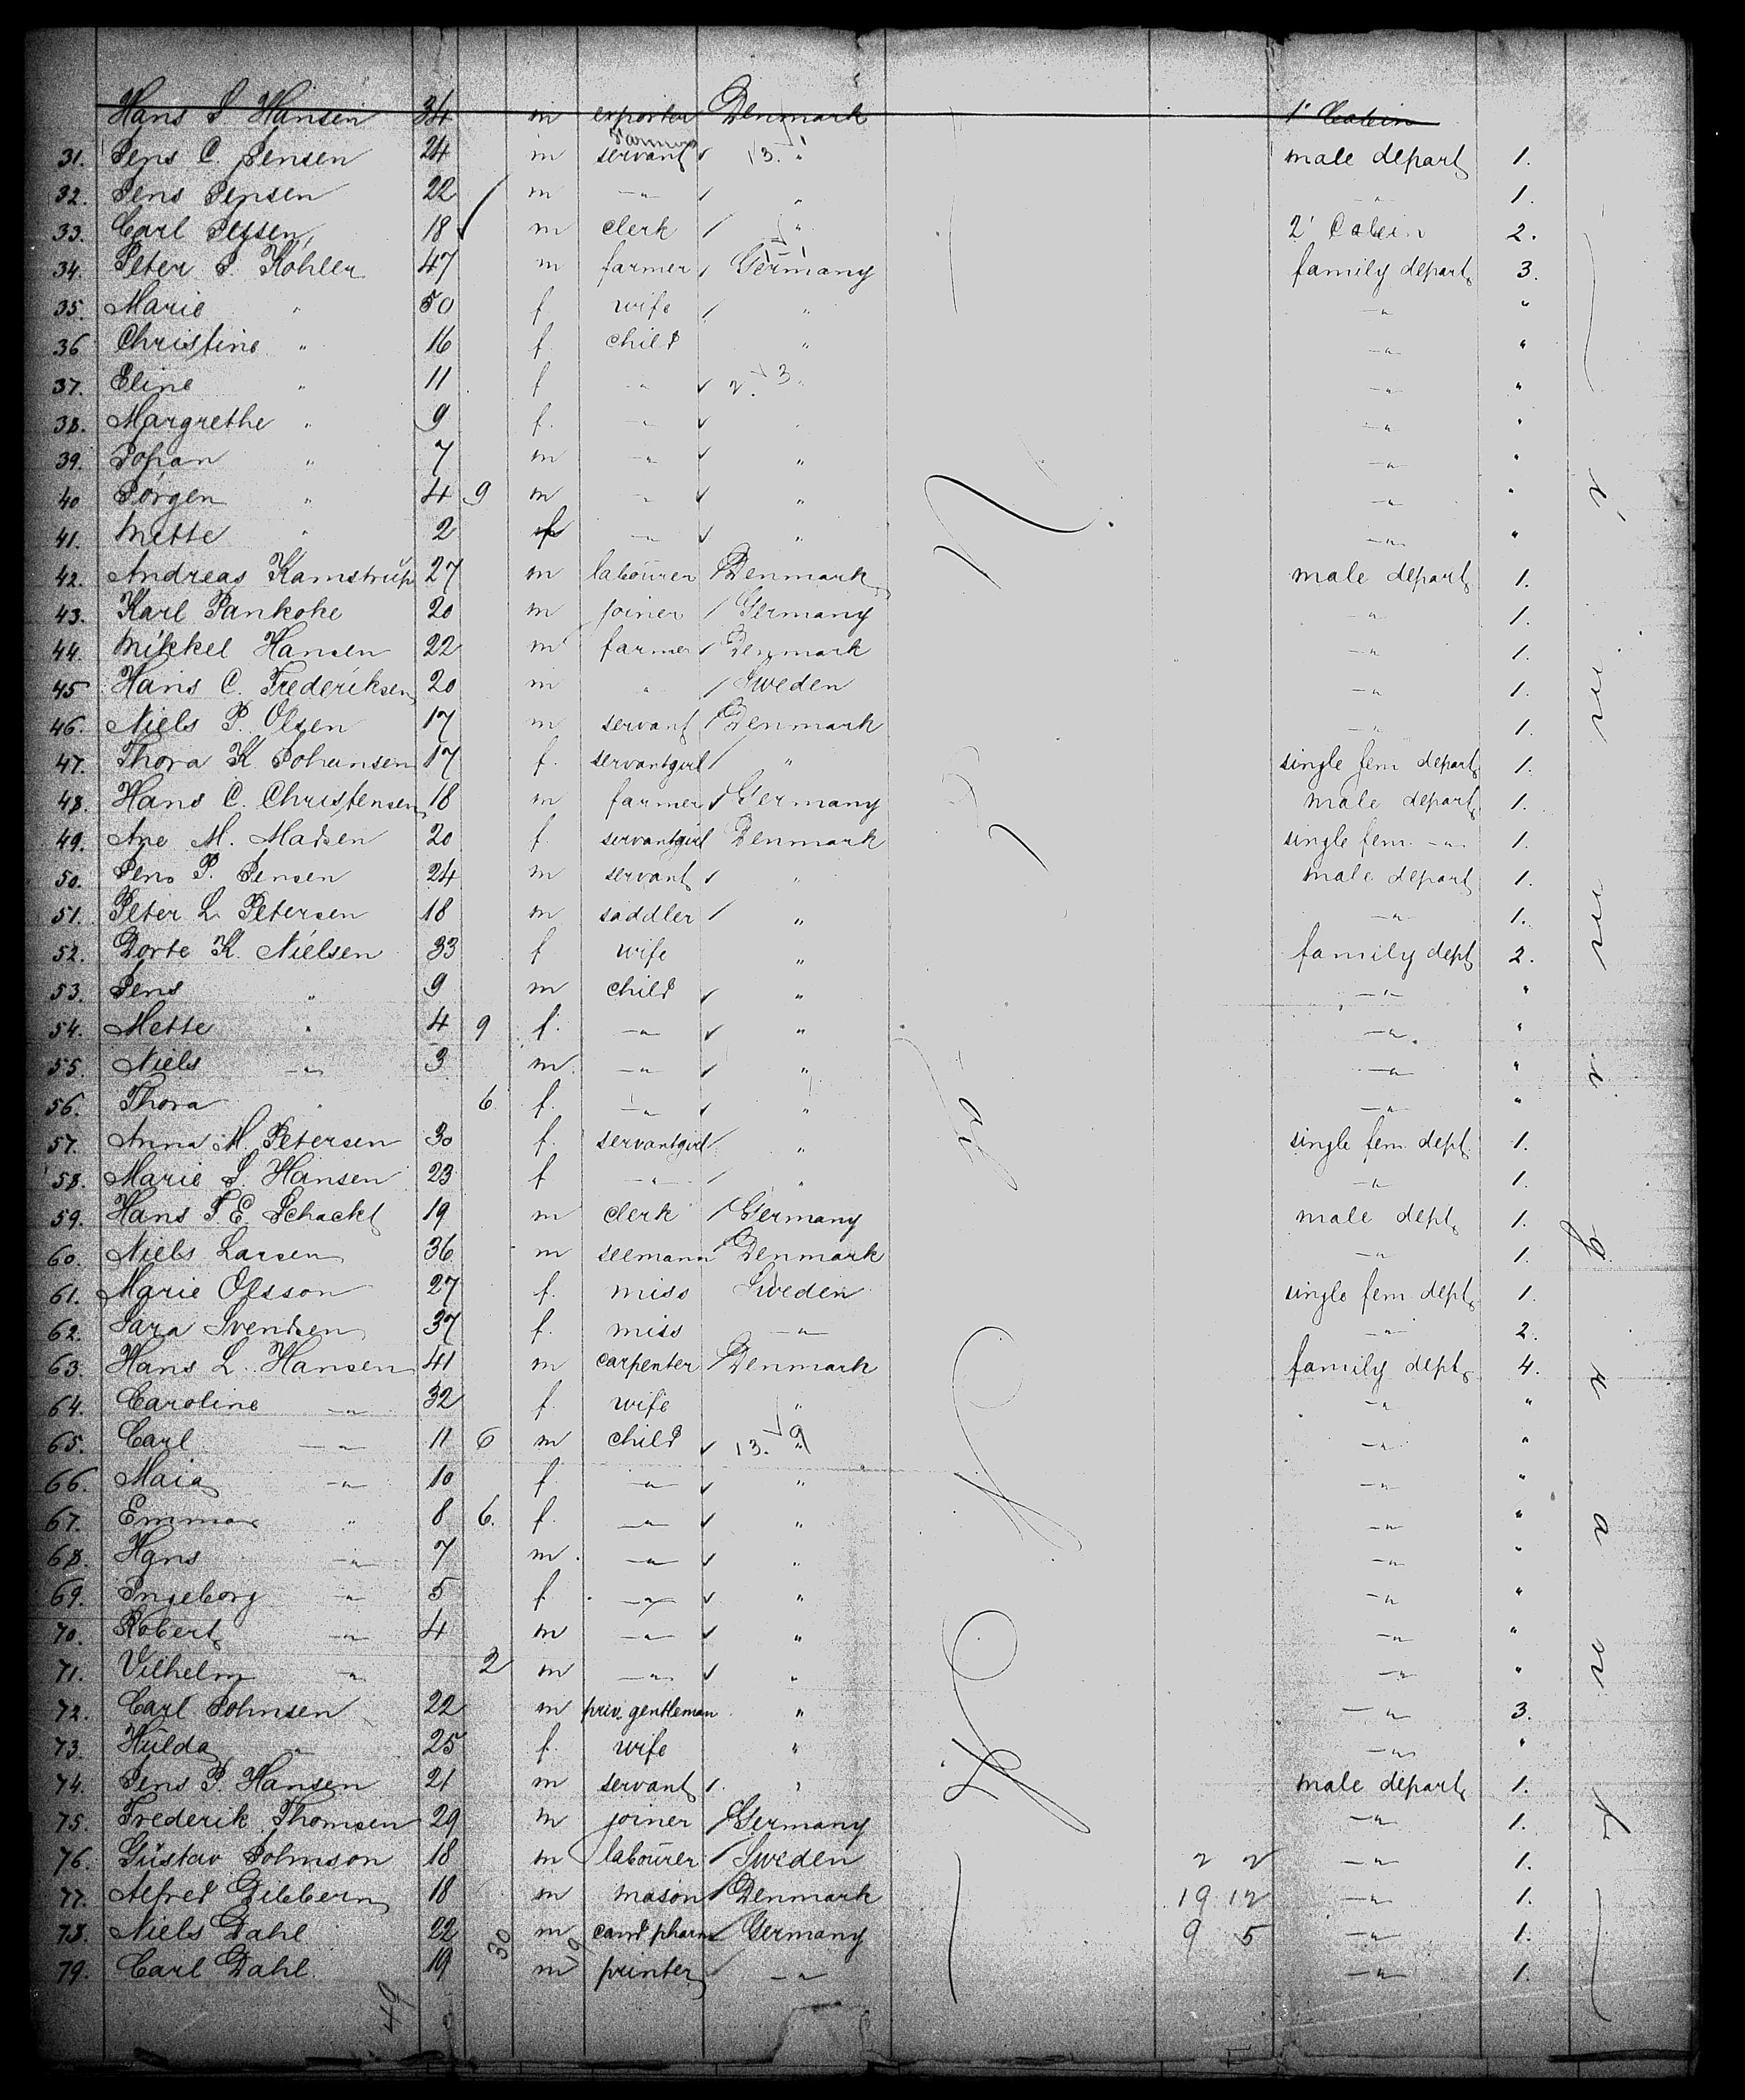 Hans S. Hansen 34 m exporter Denmark 1' Cabin
farmer
31. Jens C. Jensen 24 m servant 13. " male depart 1.
32. Jens Jensen 22 m —"— " —"— 1.
33. Carl Jessen 18 m clerk " 2' Cabin 2.
34. Peter J. Köhler 47 m farmer Germany family depart 3.
35. Marie " 50 f wife " —"— "
36 Christine " 16 f. child " —"— "
37. Eline " 11 f —"— 2. 3. —"— "
38. Margrethe " 9 f. —"— " —"— "
39. Johan " 7 m —"— " —"— "
40 Jörgen " 4 9 m —"— " —"— "
41. Mette " 2 f —"— " —"— "
42. Andreas Kamstrup 27 m labourer Denmark male depart 1.
43. Karl Pankoke 20 m joiner Germany —"— 1.
44. Mikkel Hansen 22 m farmer Denmark —"— 1.
45 Hans C. Frederiksen 20 m " Sweden —"— 1.
46. Niels P. Olsen 17 m servant Denmark —"— 1.
47. Thora K. Johansen 17 f. servantgirl " single fem depart 1.
48. Hans C. Christensen 18 m farmer Germany male depart 1.
49. Ane M. Madsen 20 f servantgirl Denmark single fem. —"— 1.
50. Jens P. Jensen 24 m servant " male depart 1.
51. Peter L. Petersen 18 m saddler " —"— 1.
52. Dorte K. Nielsen 33 f wife " family dept 2.
53. Jens " 9 m child " —"— "
54. Mette " 4 9 f. —"— " —"— "
55. Niels —"— 3 m. —"— " —"— "
56. Thora " 6 f. —"— " —"— "
57. Anna M. Petersen 30 f. servantgirl " single fem dept 1.
58. Marie S. Hansen 23 f —"— " —"— 1.
59. Hans P. E. Schackt 19 m clerk Germany male dept 1.
60. Niels Larsen 36 m seemann Denmark —"— 1.
61. Marie Olsson 27 f. miss Sweden single fem dept 1.
62. Sara Svendsen 37 f. miss —"— —"— 2.
63. Hans L. Hansen 41 m carpenter Denmark family dept 4.
64. Caroline —"— 32 f. wife " —"— "
65. Carl —"— 11 6 m child 13. 9 —"— "
66. Maia —"— 10 f. —"— " —"— "
67. Emma " 8 6. f. —"— " —"— "
68. Hans —"— 7 m. —"— " —"— "
69. Ingeborg —"— 5 f —"— " —"— "
70. Robert —"— 4 m —"— " —"— "
71. Vilhelm —"— 2 m —"— " —"— "
72. Carl Johnsen 22 m priv. gentleman " —"— 3.
73. Hulda —"— 25 f. wife " —"— "
74. Jens P. Hansen 21 m servant " male depart 1.
75. Frederik Thomsen 29 m joiner Germany —"— 1.
76. Gustav Johnson 18 m labourer Sweden 2 2 —"— 1.
77. Alfred Dibbern 18 m mason Denmark 19 12 —"— 1.
78. Niels Dahl 22 m cand pharm Germany 9 5 —"— 1.
79. Carl Dahl 19 m printer —"— —"— 1.
49 30 19